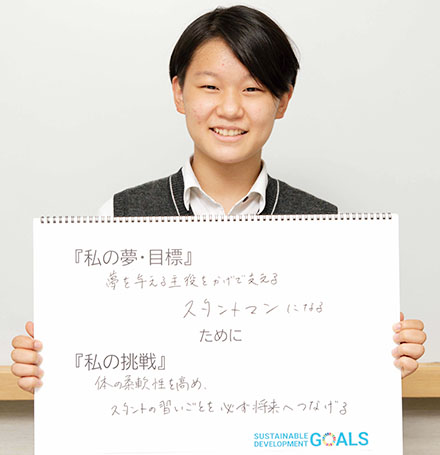 『私の夢・目標』
夢を与える主役をかげで支える
スタントマンになる
ために
『私の挑戦』
体の柔軟性を高め、
スタントの習いごとを必ず将来へつなげる
SUSTAINABLE
DEVELOPMENT GOALS